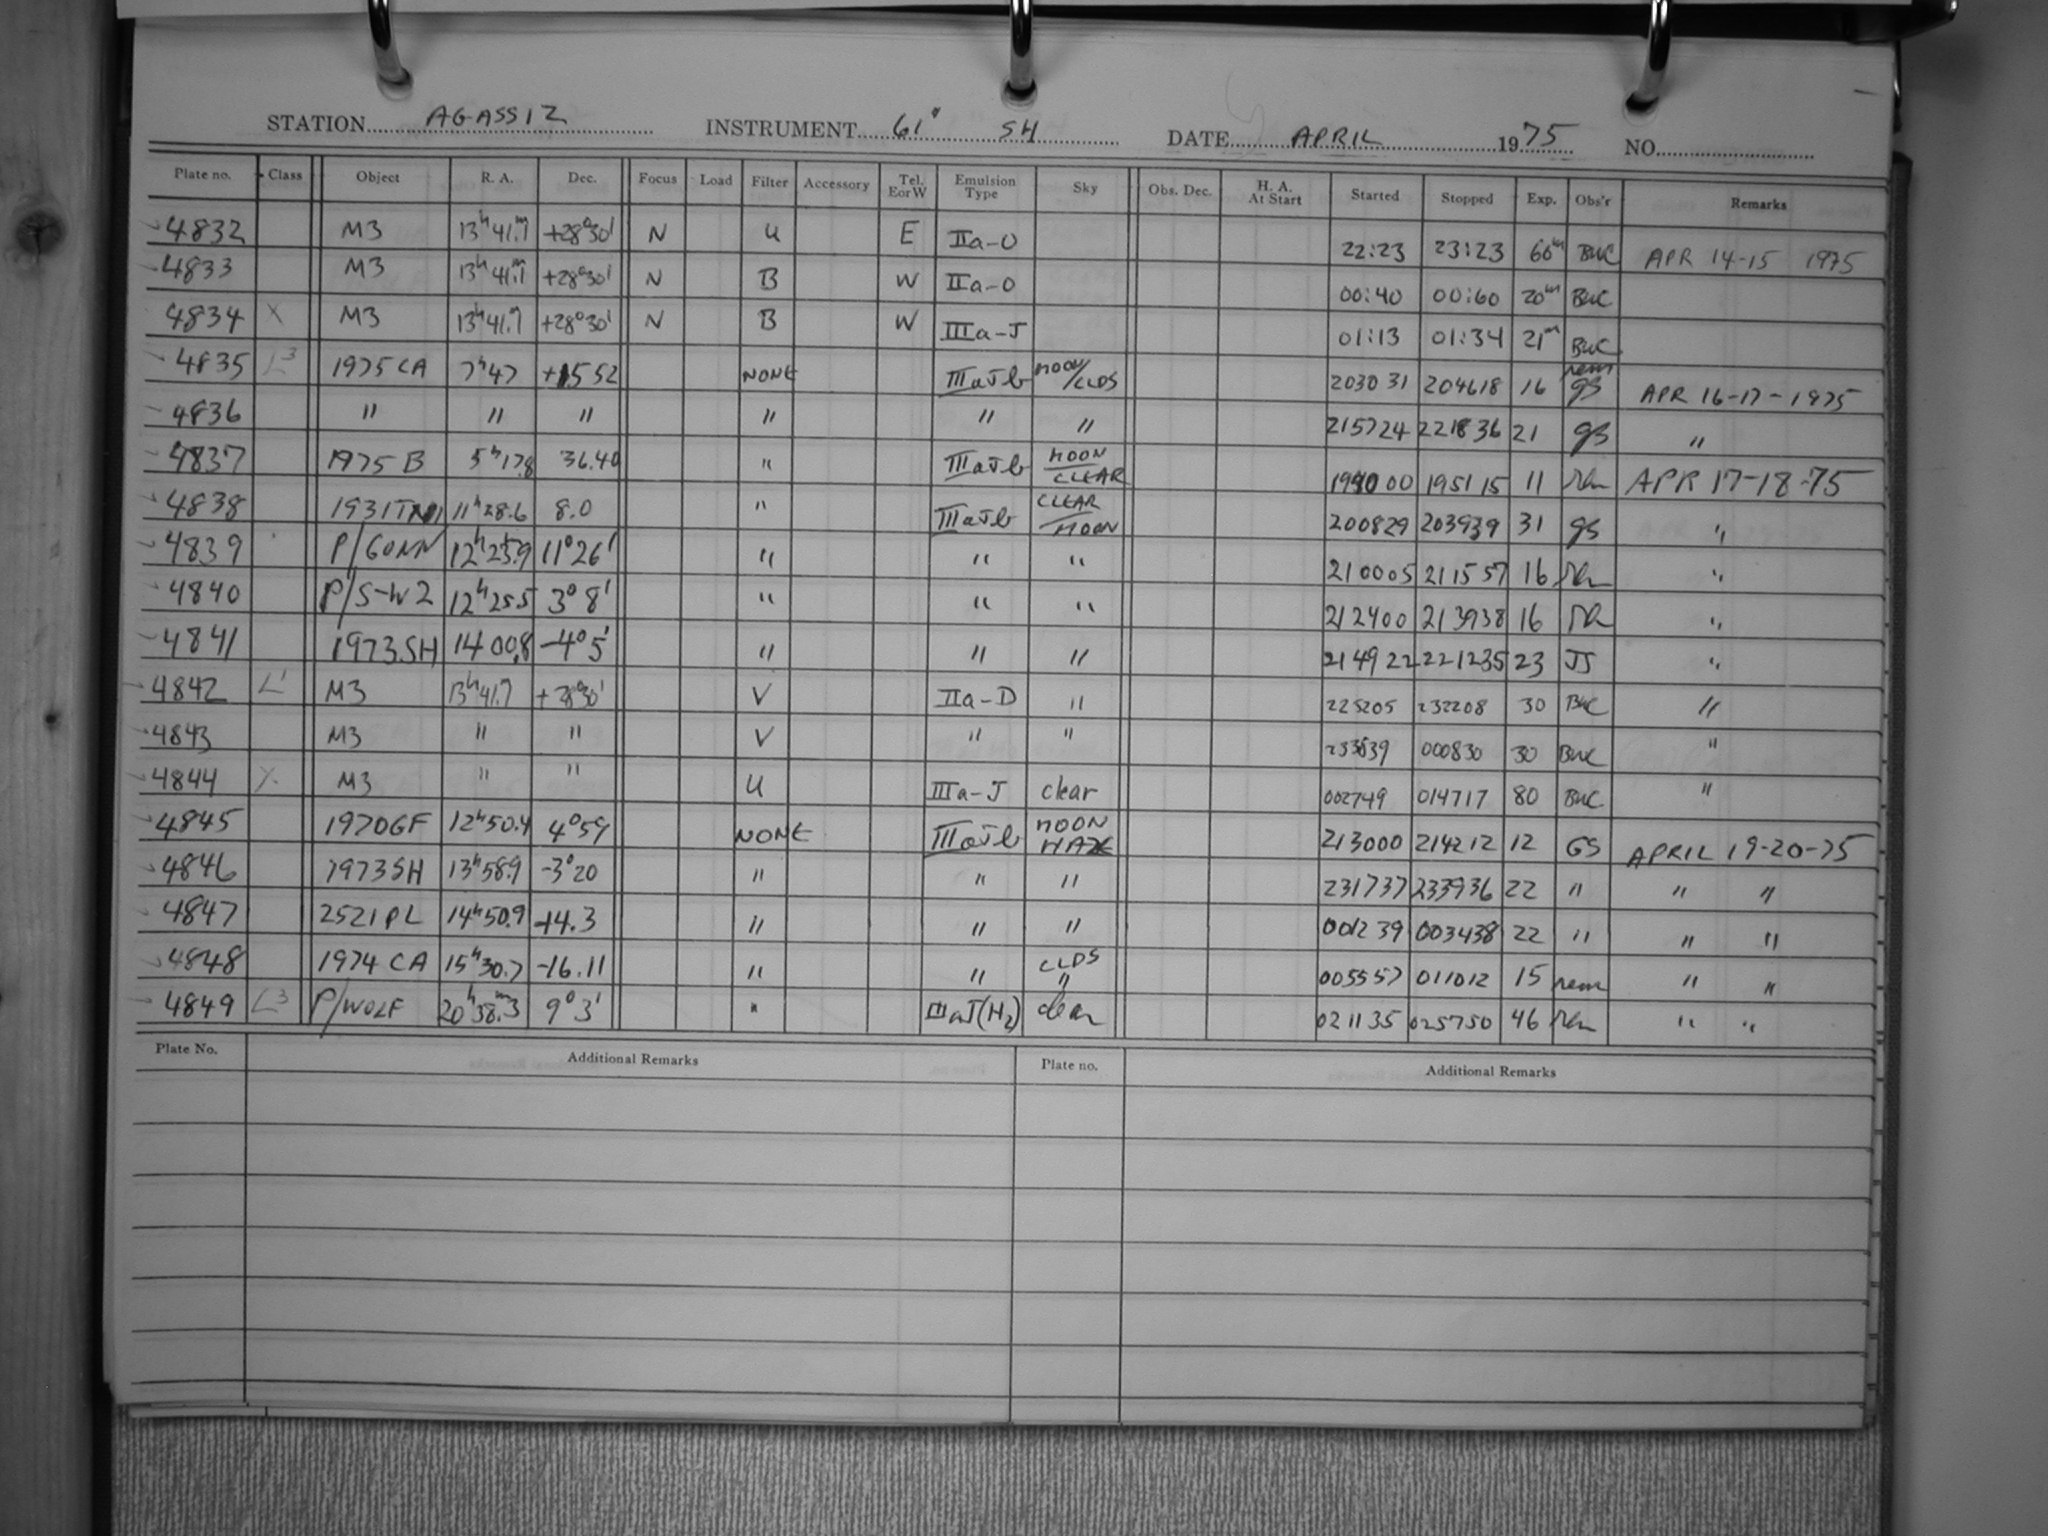 STATION AGASSIZ INSTRUMENT 61" SH DATE APRIL 1975 NO.
Plate no. Class Object R. A. Dec. Focus Load Filter Accessory Tel. EorW Emulsion Type Sky Obs. Dec. H. A. At Start Started Stopped Exp. Obs'r Remarks
4832 M3 13h 41.7m +28°30' N U E IIa-O 22:23 23:23 60m BWC APR 14-15 1975
4833 M3 13h 41.7m +28°30' N B W IIa-O 00:40 00:60 20m BWC
4834 X M3 13h 41.7 +28°30' N B W IIIa-J 01:13 01:34 21m BWC
4835 L3 1975 CA 7h47 +15 52 NONE IIIaJb MOON/CLDS 203031 204618 16 rem gs APR 16-17-1975
4836 " " " " " " 215724 221836 21 gs "
4837 1975 B 5h17.8 36.40 " IIIaJb MOON CLEAR 194000 195115 11 APR 17-18-75
4838 11h28.6 8.0 " IIIaJb CLEAR MOON 200829 203939 31 gs "
4839 P/GUNN 12h25.9 11°26' " " " 210005 211557 16 "
4840 P/S-W2 12h25.5 3°8' " " " 212400 213938 16 "
4841 1973SH 14 00.8 -4°5' " " " 214922 221235 23 JS "
4842 L1 M3 13h41.7 +28°30' V IIa-D " 225205 232208 30 BWC "
4843 M3 " " V " " 233839 000830 30 BWC "
4844 X M3 " " U IIIa-J clear 002749 014717 80 BWC "
4845 1970GF 12h50.4 4°59 NONE IIIaJb MOON HAZE 213000 214212 12 GS APRIL 19-20-75
4846 1973SH 13h58.9 -3°20 " " " 231737 233936 22 " " "
4847 2521PL 14h50.9 -14.3 " " " 001239 003438 22 " " "
4848 1974 CA 15h30.7 -16.11 " " CLDS " 005557 011012 15 rem " "
4849 L3 P/WOLF 20h38.m3 9°3' " IIIaJ(H2) clear 021135 025750 46 " "
Plate No. Additional Remarks Plate no. Additional Remarks